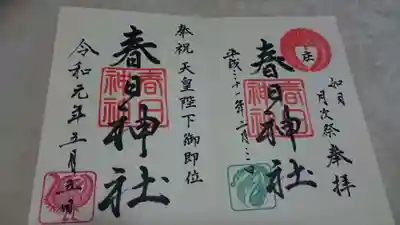 奉拝
如月
月次祭
春日神社
春日
神社
平成三十一年二月
奉祝 天皇陛下御即位
春日神社
春日
神社
令和元年五月五日